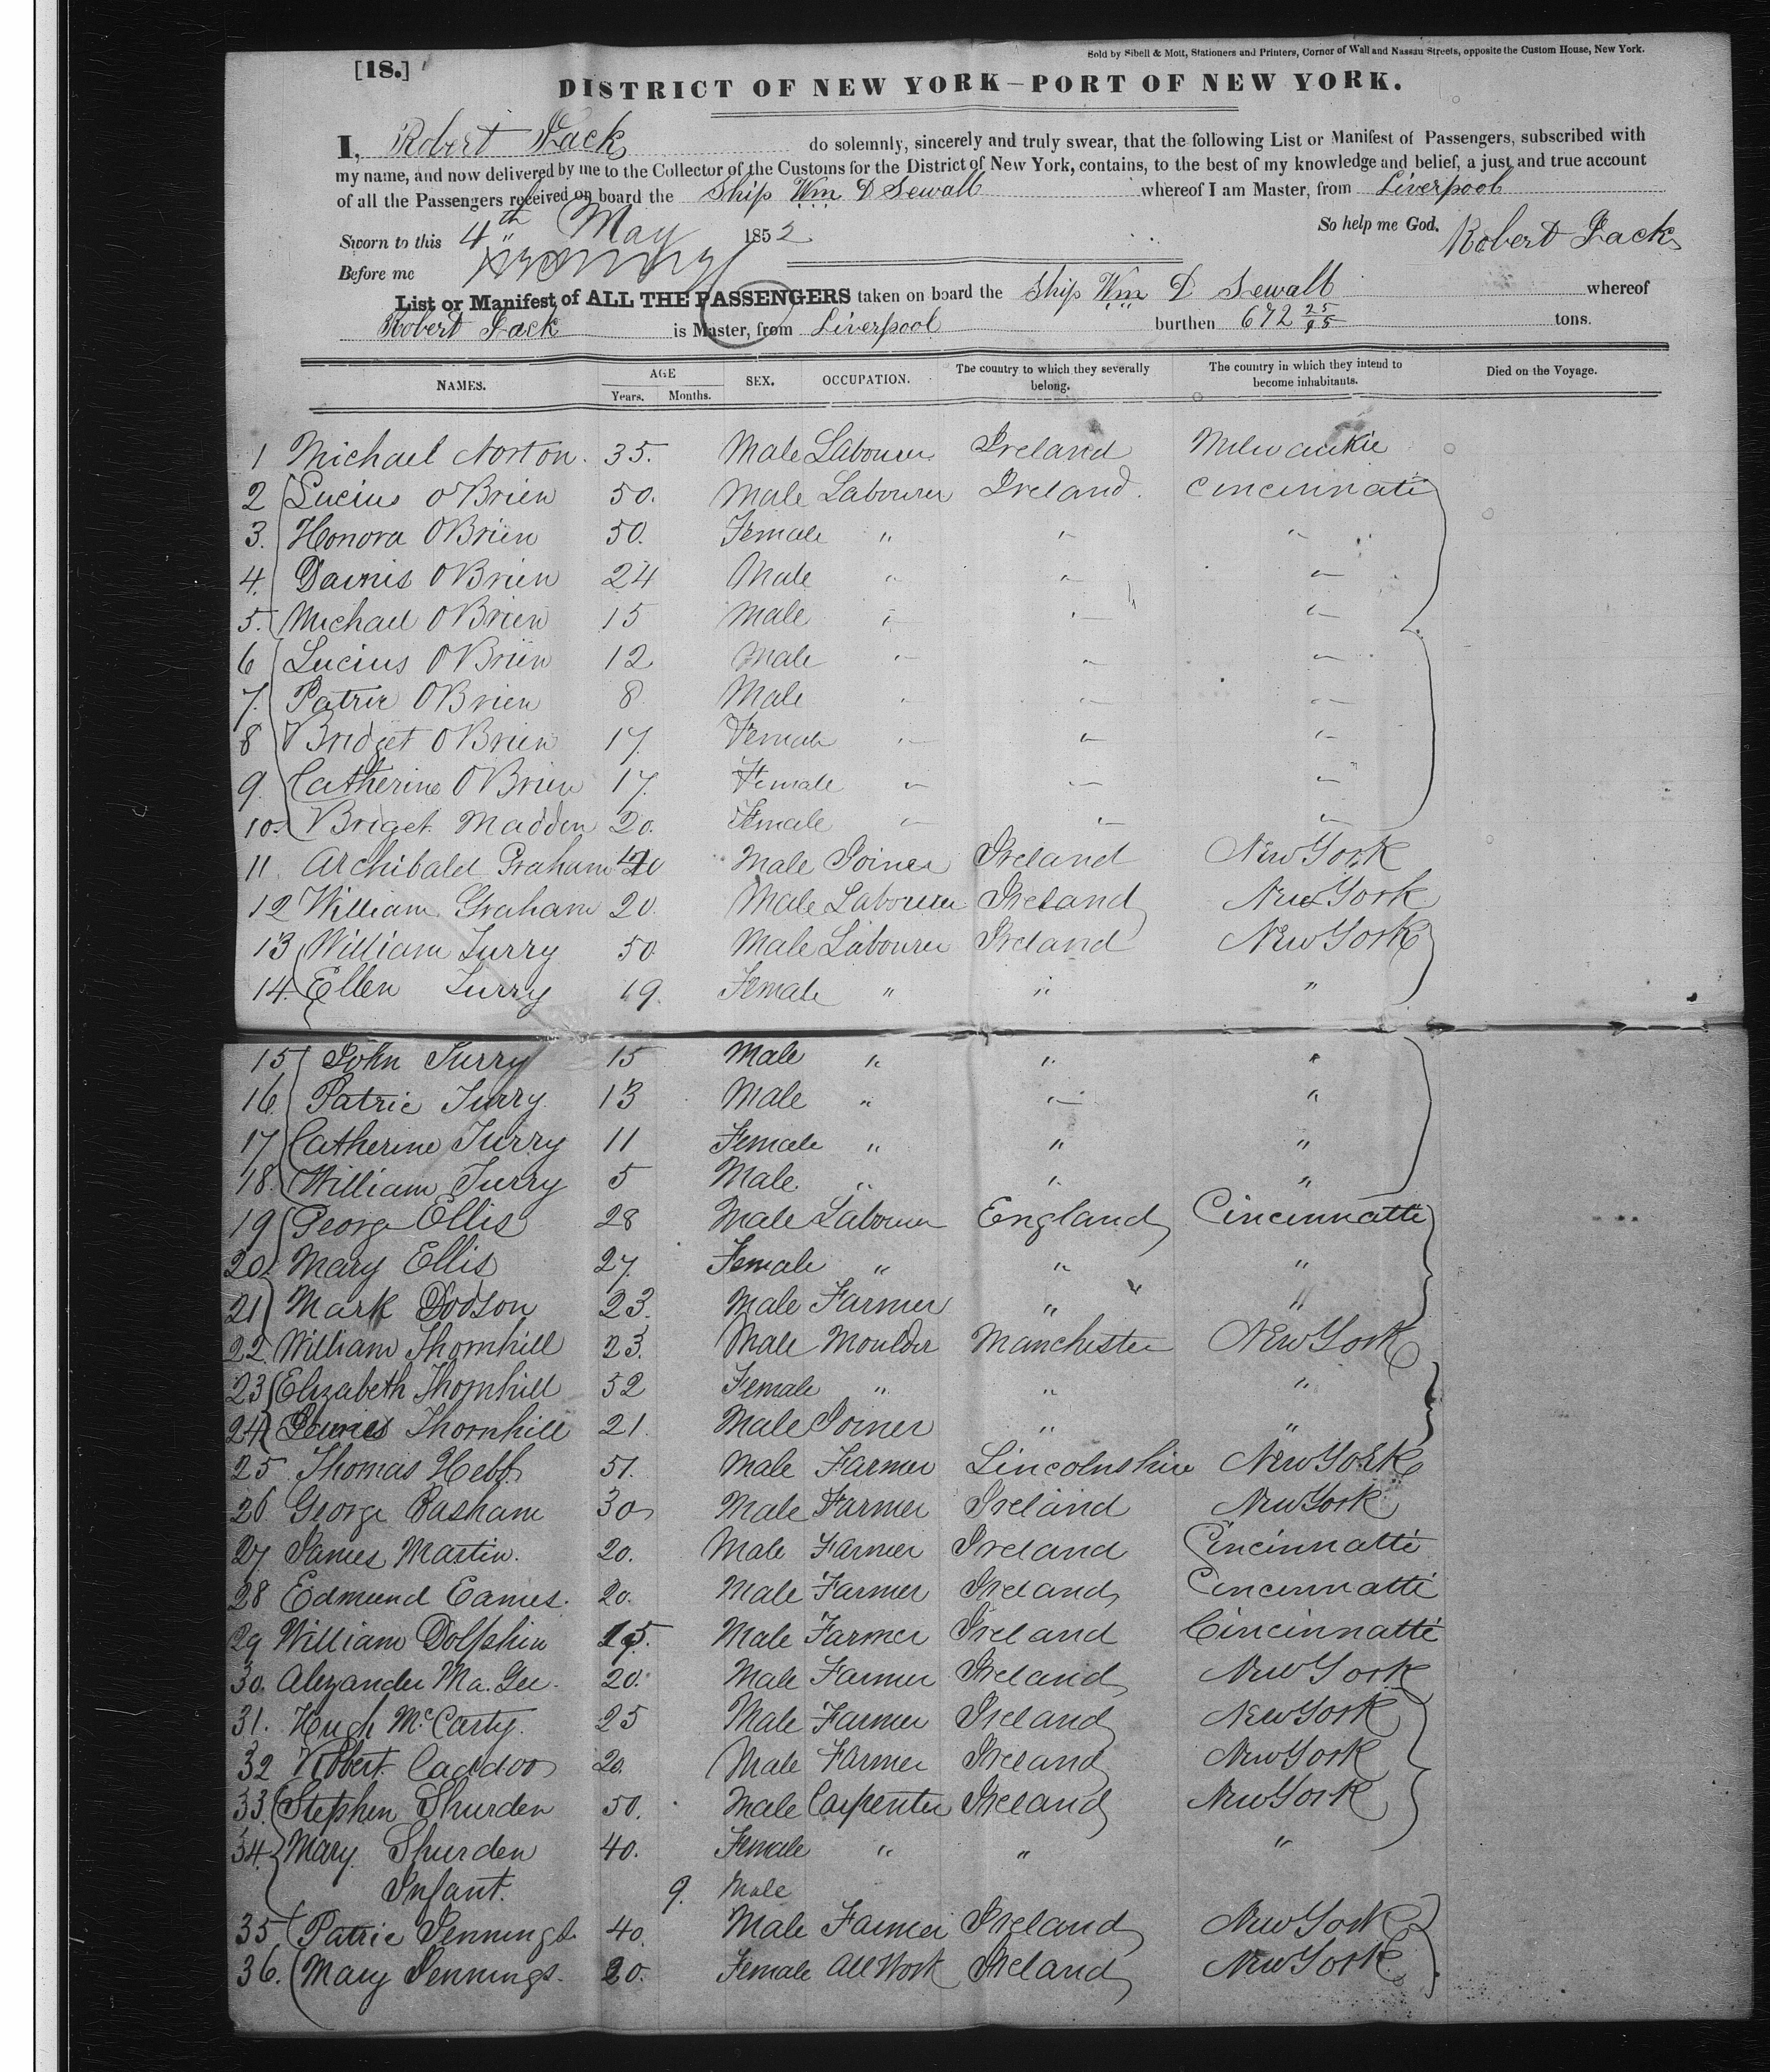 [18.]
Sold by Sibell & Mott, Stationers and Printers, Corner of Wall and Nassau Streets, opposite the Custom House, New York.
DISTRICT OF NEW YORK—PORT OF NEW YORK.
I, Robert Jack do solemnly, sincerely and truly swear, that the following List or Manifest of Passengers, subscribed with
my name, and now delivered by me to the Collector of the Customs for the District of New York, contains, to the best of my knowledge and belief, a just and true account
of all the Passengers received on board the Ship Wm D Sewall whereof I am Master, from Liverpool
So help me God. Robert Jack
Sworn to this 4th May 1852
Before me
List or Manifest of ALL THE PASSENGERS taken on board the Ship Wm D Sewall whereof
Robert Jack is Master, from Liverpool burthen 672 25/95 tons.
NAMES. AGE Years. Months. SEX. OCCUPATION. The country to which they severally belong. The country in which they intend to become inhabitants. Died on the Voyage.
1 Michael Norton. 35. Male Labourer Ireland Milwaukie
2 Lucius O'Brien 50. Male Labourer Ireland. Cincinnati
3. Honora OBrien 50. Female " " "
4. Dainis OBrien 24 Male " " "
5. Michael OBrien 15 Male " " "
6 Lucius OBrien 12 Male " " "
7. Patric OBrien 8 Male " " "
8 Bridget OBrien 17. Female " " "
9. Catherine OBrien 17. Female " " "
10. Briget Madden 20. Female " " "
11. Archibald Graham 40 Male Joiner Ireland New York
12 William Graham 20 Male Labourer Ireland New York
13 William Turry 50. Male Labourer Ireland New York
14. Ellen Turry 19. Female " " "
15 John Turry 15 Male " " "
16 Patric Turry 13 Male " " "
17 Catherine Turry 11 Female " " "
18. William Turry 5 Male. " " "
19 George Ellis 28 Male Labourer England Cincinnatti
20 Mary Ellis 27. Female " " "
21 Mark Dodson 23. Male Farmer " "
22. William Thornhill 23. Male Moulder Manchester New York
23 Elizabeth Thornhill 52 Female " " "
24 Thornhill 21. Male Joiner " "
25 Thomas Hebb 51. Male Farmer Lincolnshire New York
26 George Basham 30 Male Farmer Ireland New York
27 James Martin. 20. Male Farmer Ireland Cincinnatti
28 Edmund Eames. 20. Male Farmer Ireland Cincinnatti
29 William Dolphin Male Farmer Ireland Cincinnatti
30. Alexander Ma.Gee. 20. Male Farmer Ireland New York
31. Hugh McCarty. 25 Male Farmer Ireland New York
32 Robert Caddoo 20. Male Farmer Ireland New York
33 Stephen Shurden 50. Male Carpenter Ireland New York
34. Mary Shurden 40. Female " " "
Infant. 9. Male
35 Patric Jennings. 40. Male Farmer Ireland New York
36. Mary Jennings. 20. Female All Work Ireland New York.